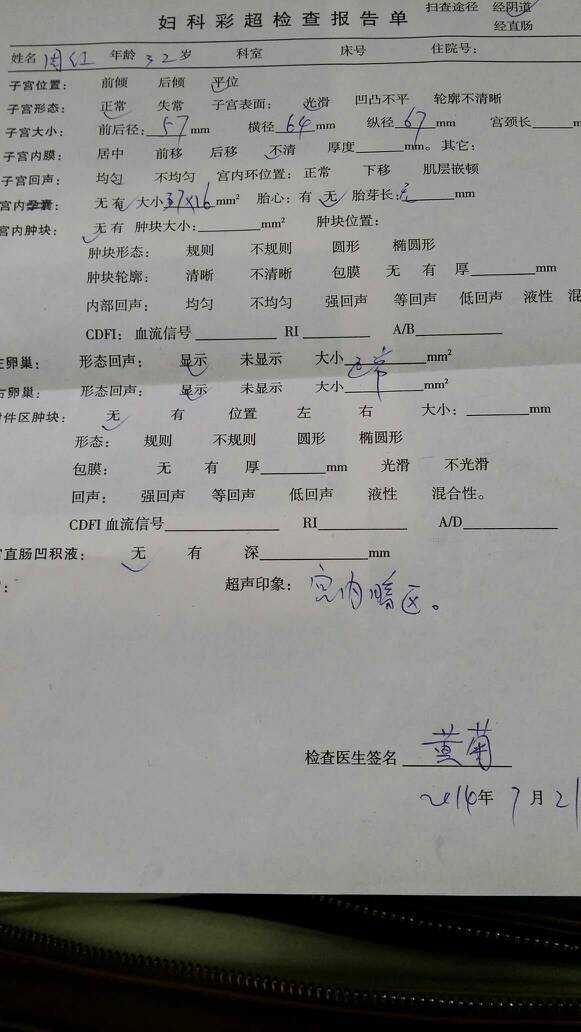 妇科彩超检查报告单
扫查途径 经阴道
经直肠
姓名 周红 年龄 32 岁 科室 床号 住院号:
子宫位置: 前倾 后倾 平位
子宫形态: 正常 失常 子宫表面: 光滑 凹凸不平 轮廓不清晰
子宫大小: 前后径: 57 mm 横径 64 mm 纵径 67 mm 宫颈长
子宫内膜: 居中 前移 后移 不清 厚度 mm。其它:
子宫回声: 均匀 不均匀 宫内环位置: 正常 下移 肌层嵌顿
宫内孕囊: 无 有 大小 37×16 mm² 胎心: 有 无 胎芽长: 无 mm
宫内肿块: 无 有 肿块大小: mm² 肿块位置:
肿块形态: 规则 不规则 圆形 椭圆形
肿块轮廓: 清晰 不清晰 包膜 无 有 厚 mm
内部回声: 均匀 不均匀 强回声 等回声 低回声 液性 混
CDFI: 血流信号 RI A/B
左卵巢: 形态回声: 显示 未显示 大小 正常 mm²
右卵巢: 形态回声: 显示 未显示 大小 mm²
附件区肿块: 无 有 位置 左 右 大小: mm
形态: 规则 不规则 圆形 椭圆形
包膜: 无 有 厚 mm 光滑 不光滑
回声: 强回声 等回声 低回声 液性 混合性。
CDFI 血流信号 RI A/D
宫直肠凹积液: 无 有 深 mm
超声印象: 宫内暗区。
检查医生签名 黄菊
2014年 7 月 21